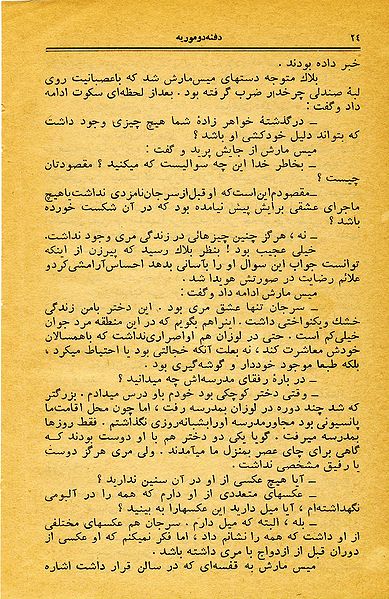 ۲٤ دفنه دو موریه
خبر داده بودند .
بلاك متوجه دستهای میس‌مارش شد که باعصبانیت روی
لبهٔ صندلی چرخدار ضرب گرفته بود . بعداز لحظه‌ای سکوت ادامه
داد وگفت :
ــ درگذشتهٔ خواهر زادهٔ شما هیچ چیزی وجود داشت
که بتواند دلیل خودکشی او باشد ؟
میس مارش از جایش پرید و گفت :
ــ بخاطر خدا این چه سوالیست که میکنید ؟ مقصودتان
چیست ؟
ــ مقصودم این‌است‌که او قبل‌از سرجان‌نامزدی نداشت‌یاهیچ
ماجرای عشقی برایش پیش نیامده بود که در آن شکست خورده
باشد ؟
ــ نه ، هرگز چنین چیزهائی در زندگی مری وجود نداشت.
خیلی عجیب بود ! بنظر بلاك رسید که پیرزن از اینکه
توانست جواب این سوال او را بآسانی بدهد احساس‌آرامشی‌کردو
علائم رضایت در صورتش هویدا شد .
میس مارش ادامه داد وگفت :
ــ سرجان تنها عشق مری بود . این دختر بامن زندگی
خشك ویکنواختی داشت . اینراهم بگویم که در این منطقه مرد جوان
خیلی‌کم است . حتی در لوزان هم اواصراری‌نداشت که باهمسالان
خودش معاشرت کند ، نه بعلت آنکه خجالتی بود یا احتیاط میکرد ،
بلکه طبعا موجود خوددار و گوشه‌گیری بود .
ــ در بارهٔ رفقای مدرسه‌اش چه میدانید ؟
ــ وقتی دختر کوچکی بود خودم باو درس میدادم . بزرگتر
که شد چند دوره در لوزان بمدرسه رفت ، اما چون محل اقامت‌ما
پانسیونی بود مجاورمدرسه اورابشبانه‌روزی نگذاشتم . فقط روزها
بمدرسه میرفت . گویا یکی دو دختر هم با او دوست بودند کـه
گاهی برای چای عصر بمنزل ما میآمدند . ولی مری هرگز دوست
یا رفیق مشخصی نداشت .
ــ آیا هیچ عکسی از او در آن سنین ندارید ؟
ــ عکسهای متعددی از او دارم که همه را در آلبومی
نگهداشته‌ام ، آیا میل دارید این عکسهارا به بینید ؟
ــ بله ، البته که میل دارم . سرجان هم عکسهای مختلفی
از او داشت که همه را نشانم داد ، اما فکر نمیکنم که او عکسی از
دوران قبل از ازدواج با مری داشته باشد .
میس مارش به قفسه‌ای که در سالن قرار داشت اشاره